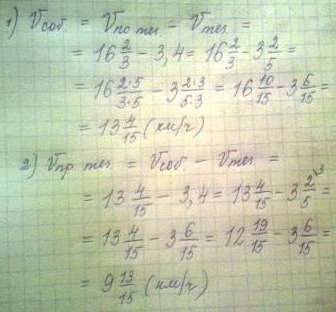 1) Vсоб. = Vпо теч. – Vтеч. =
= 16 2/3 – 3,4 = 16 2/3 – 3 2/5 =
= 16 2·5/3·5 – 3 2·3/5·3 = 16 10/15 – 3 6/15 =
= 13 4/15 (км/ч)
2) Vпр. теч. = Vсоб. – Vтеч. =
= 13 4/15 – 3,4 = 13 4/15 – 3 2\3/5 =
= 13 4/15 – 3 6/15 = 12 19/15 – 3 6/15 =
= 9 13/15 (км/ч)